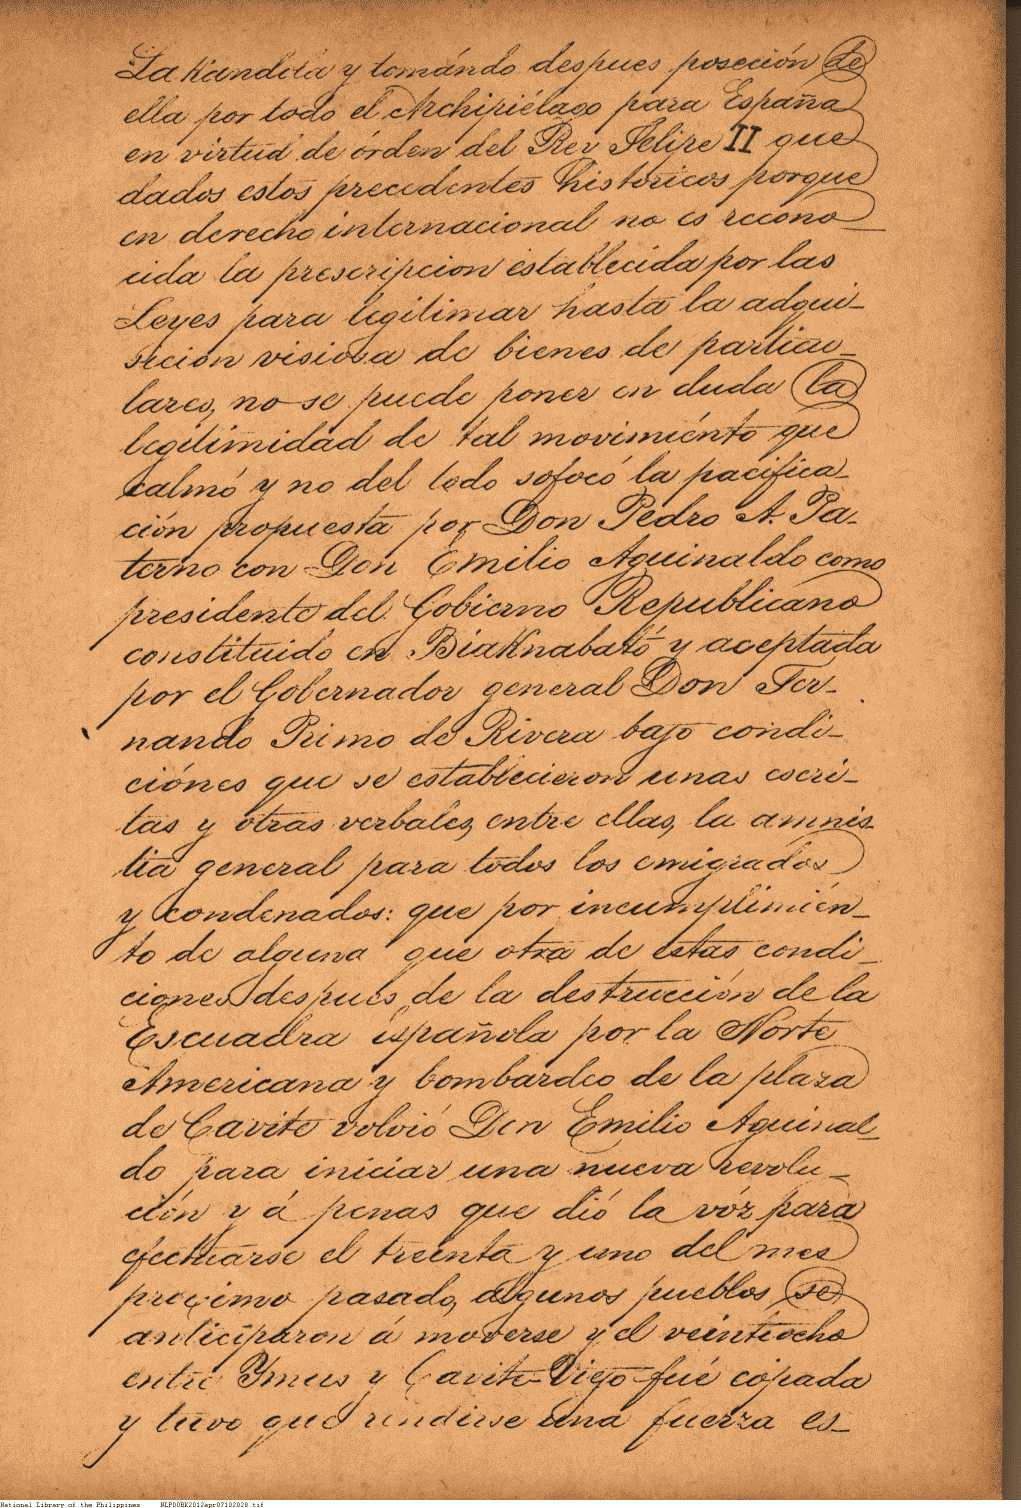 La Kandola y tomándo despues posecíón de
ella por todo el Archipiélago para España
en virtud de órden del Rey Felipe II que
dados estos precedentes históricos porque
en derecho internacional no es recono
cida la prescripcion establecida por las
Leyes para legitimar hasta la adqui-
sicion visiosa de bienes de particu-
lares, no se puede poner en duda la
legitimidad de tal movimiénto que
calmó y no del todo sofocó la pacifica-
ción propuesta por Don Pedro A. Pa-
terno con Don Emilio Aguinaldo como
presidente del Gobierno Republicano
constituido en Biaknabató y aceptada
por el Gobernador general Don Fer-
nando Primo de Rivera bajo condi-
ciónes que se establecieron unas escri-
tas y otras verbales, entre ellas, la amnis-
tia general para todos los emigrados
y condenados: que por incumplimién-
to de alguna que otra de estas condi-
ciones despues de la destrucción de la
Escuadra española por la Norte
Americana y bombardeo de la plaza
de Cavite volvió Don Emilio Aguinal-
do para iniciar una nueva revolu-
ción y á penas que dió la vóz para
efectuarse el treinta y uno del mes
procsimo pasado, algunos pueblos se
anticiparon á moverse y el veintiocho
entre Ymus y Cavite-Viejo fué copada
y tuvo que rendirse una fuerza es-
National Library of the Philippines NLPDOBK2012apr07102028.tif